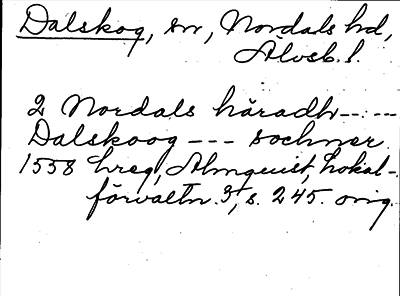 Dalskog, sn, Nordals hd,
Älvsb. l.
2 Nordals häradh -- --
Dalskoog --- sochner
1558 hreg, Almquist, Lokal-
förvaltn. 3, s. 245. orig.